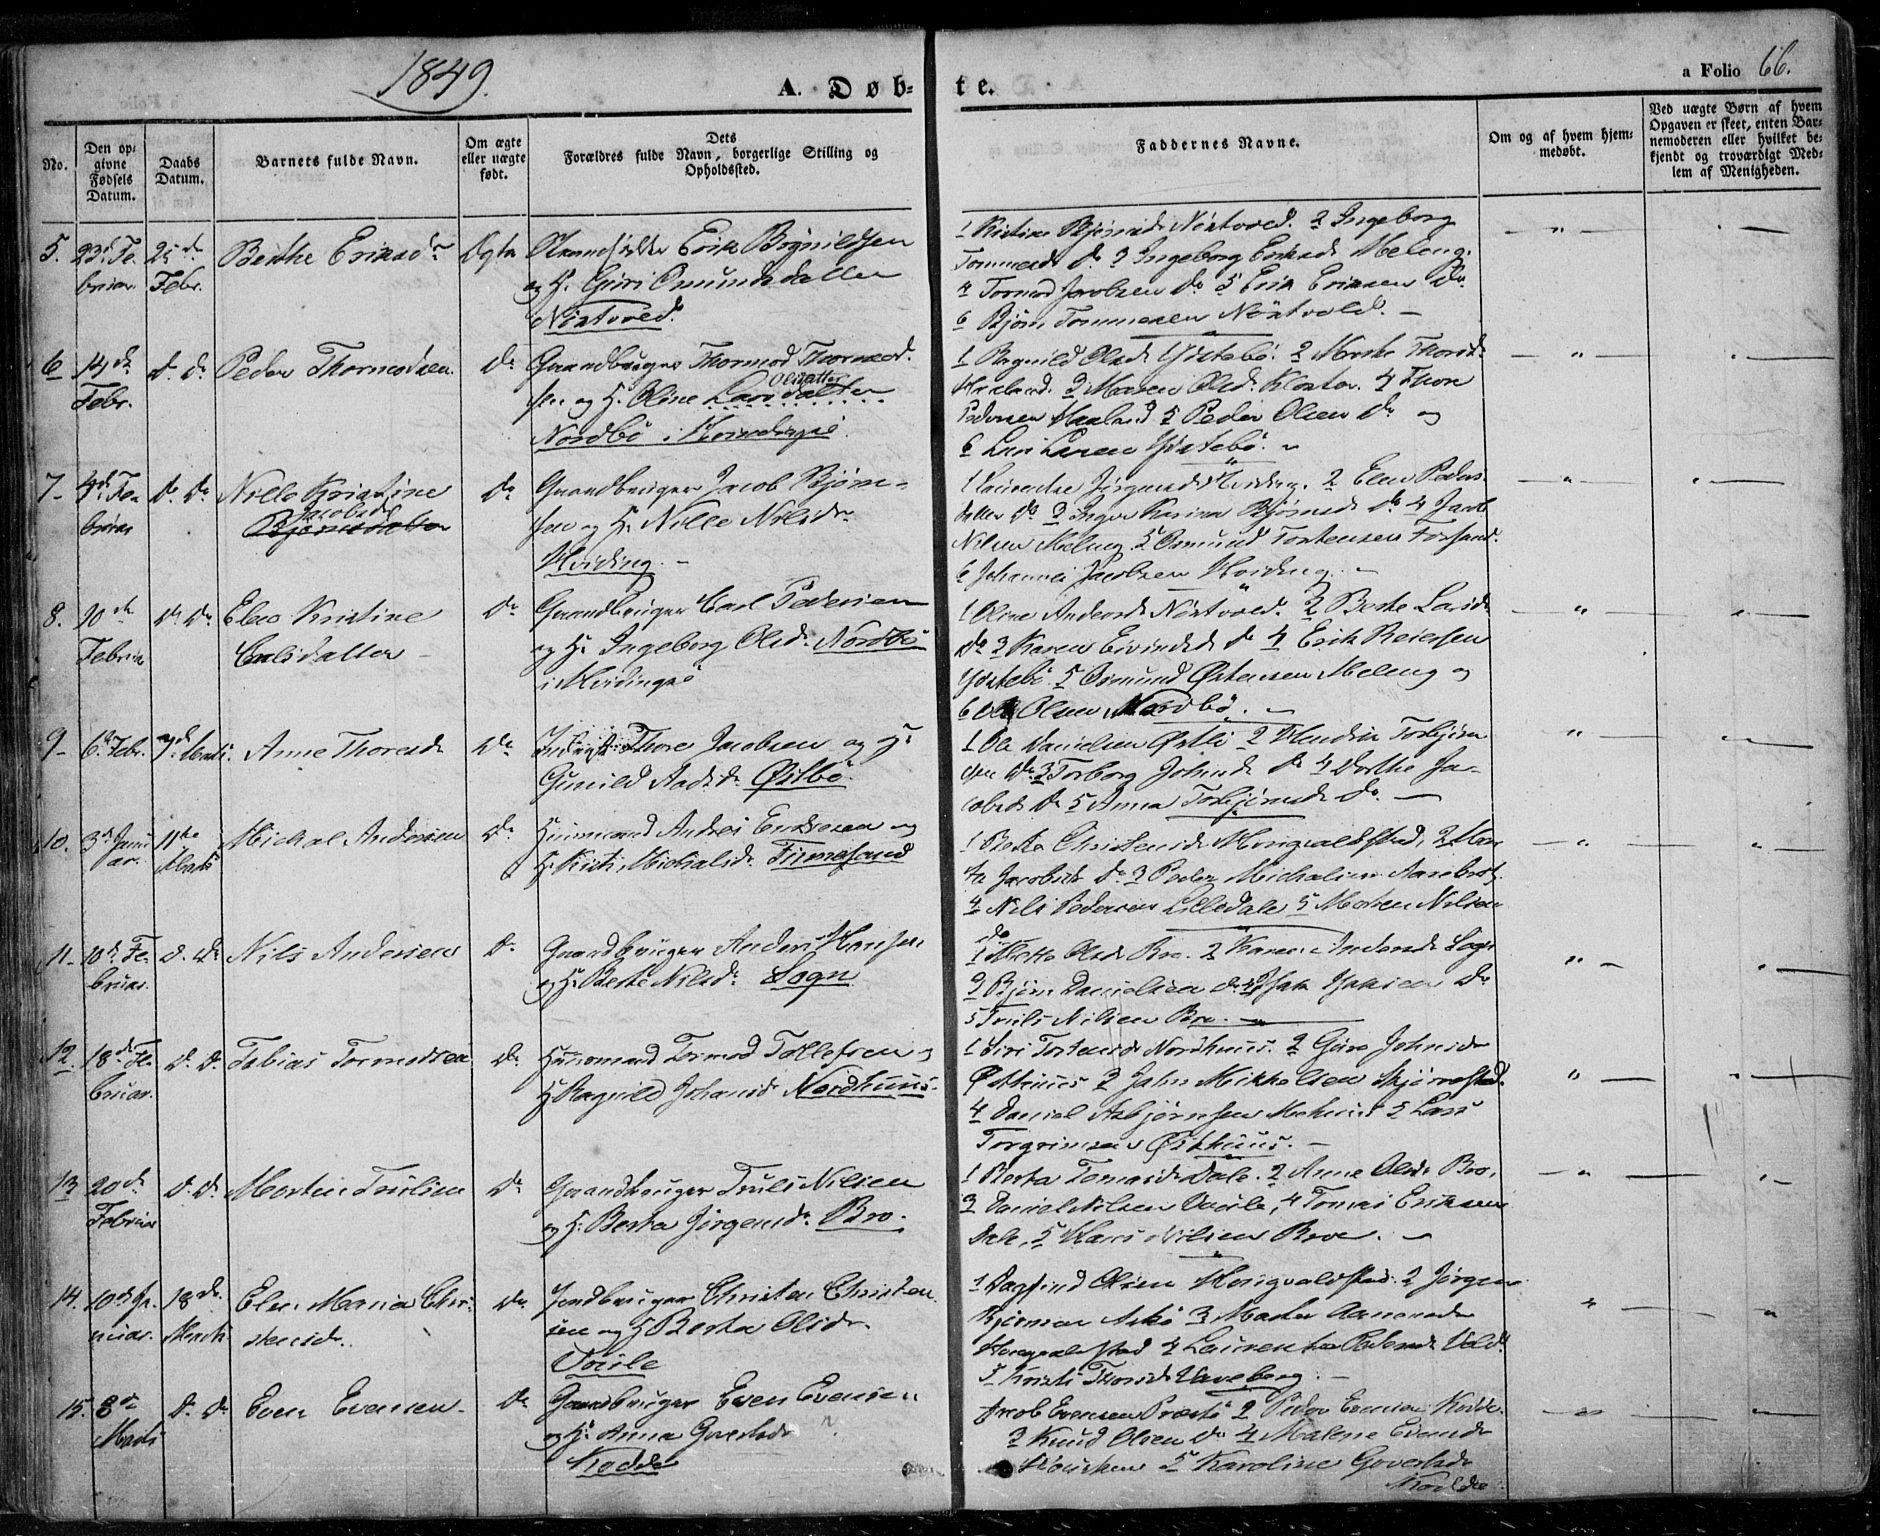 1849.
A. Døb-
te.
a Folio 66.
No.
Den op-
givne
Fødsels
Datum.
Daabs
Datum.
Barnets fulde Navn.
Om ægte
eller uægte
født.
Dets
Forældres fulde Navn, borgerlige Stilling og
Opholdssted.
Faddernes Navne.
Om og af hvem hjem-
medøbt.
Ved uægte Børn af hvem
Opgaven er skeet, enten Bar-
nemoderen eller hvilket be-
kjendt og troværdigt Med-
lem af Menigheden.
5. 23d Fe-
bruar.
25de
Febr.
Berthe Eriksdr
Ægte
Erik Bognildsen
og H. Guri Omundsdatter
Nistved.
1 Kristine Bjørnsd Nistved. 2 Ingeborg
Tommesd do 3 Ingeborg Eriksd Meleng.
4 Tormod Jacobsen do 5 Erik Eriksen do
6 Bjørn Tommesen Nistvold. -
6 14de
Febr.
d. do
Peder Thormodsen
do
Gaardbruger Thormod Thormod-
sen og H. Oline Larsdatter
Olsdatter
Nordbø i
1 Ragnild Olsd Ydstebø. 2 Thorsd
3 Maren Olsd Kloster. 4 Thore
Pedersen 5 Peder Olsen do og
6 Lars Larsen Ydstebø. -
7- 4d Fe-
bruar
d. do
Nille Kristine
Jacobsd
Bjørnsdatter
do
Gaardbruger Jacob Bjørn-
sen og H. Nille Nilsdr
Hviding. -
1 Laurentse Jørgensd Hviding. 2 Elen Peders-
datter do 3 Inger Karina Bjørnsd do 4 Jacob
Nilsen Meleng. 5 Osmund Tortensen Forsand.
6 Johannes Jacobsen Hviding. -
8. 10de
Februar
do do
Elen Kristine
Carlsdatter
do
Gaardbruger Carl Pedersen
og H. Ingeborg Olsd. Nordbø
i Hvidingsø
1 Oline Andersd Nistvold. 2 Berte Larsd
do 3 Karen Eivindsd do 4 Erik Reiersen
Ydstebø. 5 Osmund Østensen Meleng og
6 Ole Olsen Nordbø. -
9- 6d Febr.
7d Marts.
Anne Thoresd
do
Thore Jacobsen og H.
Gunild Aadsd. Østbø.
1 Ole Danielsen Østbø 2 Torbjørn
sen do 3 Torborg Johnsd do 4 Dorthe Ja-
cobsd do 5 Anna Torbjørnsd do. -
10. 3d Janu-
ar.
11te
Marts
Michal Andersen
do
Huusmand Andres Endresen og
H. Kirsti Michalsd. Finnesand
1 Berta Christensd Hougvaldstad, 2 Mar-
ta Jacobsd do 3 Peder Michalsen Aarebrot.
4 Nils Pedersen Lilledale 5 Morten Nilsen
do
11- 10d Fe-
bruar.
d. do
Nils Andersen
do
Gaardbruger Anders Hansen
og H. Berte Nilsd. Sogn
1 Mette Olsd Bro. 2 Karen Andersd Sogn
3 Bjørn Danielsen do 4 do
5 Truls Nilsen Bro. -
12. 18de Fe-
bruar.
d. d.
Tobias Tormodsen
do
Huusmand Tormod Tollefsen og
H. Ragnild Johansd Nordhuus.
1 Siri Tortensd Nordhuus. 2 Gure Johnsd
Østhuus 3 John Mikkelsen
4 Daniel Asbjørnsen 5 Lars
Torgrimsen Østhuus. -
13 20de
Februar
d. do
Morten Trulsen
do
Gaardbruger Truls Nilsen
og H. Berta Jørgensd. Bro.
1 Berta Tomasd Dale. 2 Anne Olsd Bro.
3 Daniel Nilsen Voule, 4 Tomas Eriksen
Dale, 5 Hans Nilsen Broe. -
14. 10d Ja-
nuar.
18de
Marts
Elen Maria Chri-
stensd.
do
Jordbruger Christen Christen-
sen og H Berta Olsd.
Voule
1 Dagfind Olsen Hougvaldstad. 2 Jørgen
Bjørnsen Askø 3 Marta Aamunsd
Hougvaldstad 4 Laurentse Pedersd
5 Kirsti Thorsd Vaveberg. -
15. 8de
Marts
d. do
Even Evensen
do
Gaardbruger Even Evensen
og H. Anna Govertsd
Kodde
Jacob Evensen Prestø 2 Peder Evensen Kodde.
3 Knud Olsen do 4 Malene Evensd
5 Karoline Govertsd